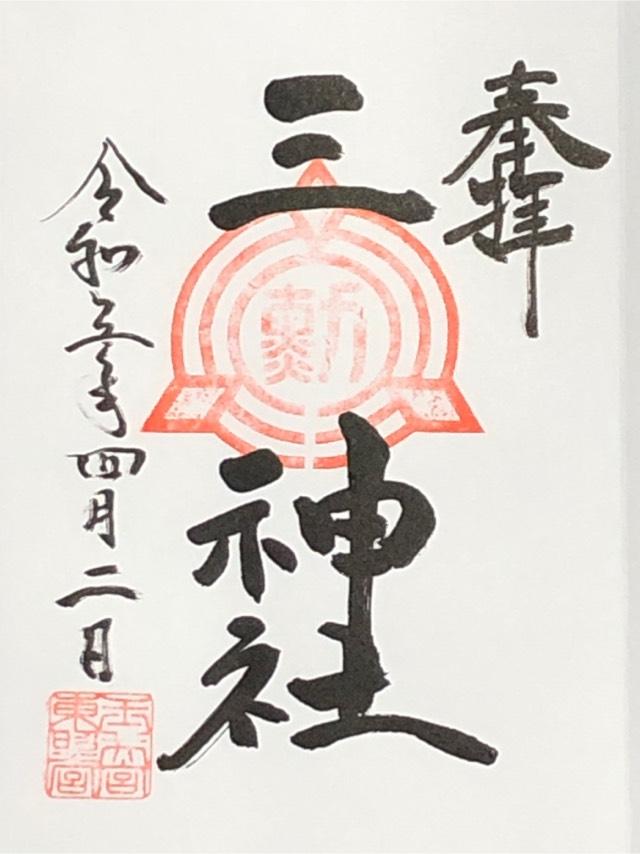 奉拝
三神社
令和三年四月二日